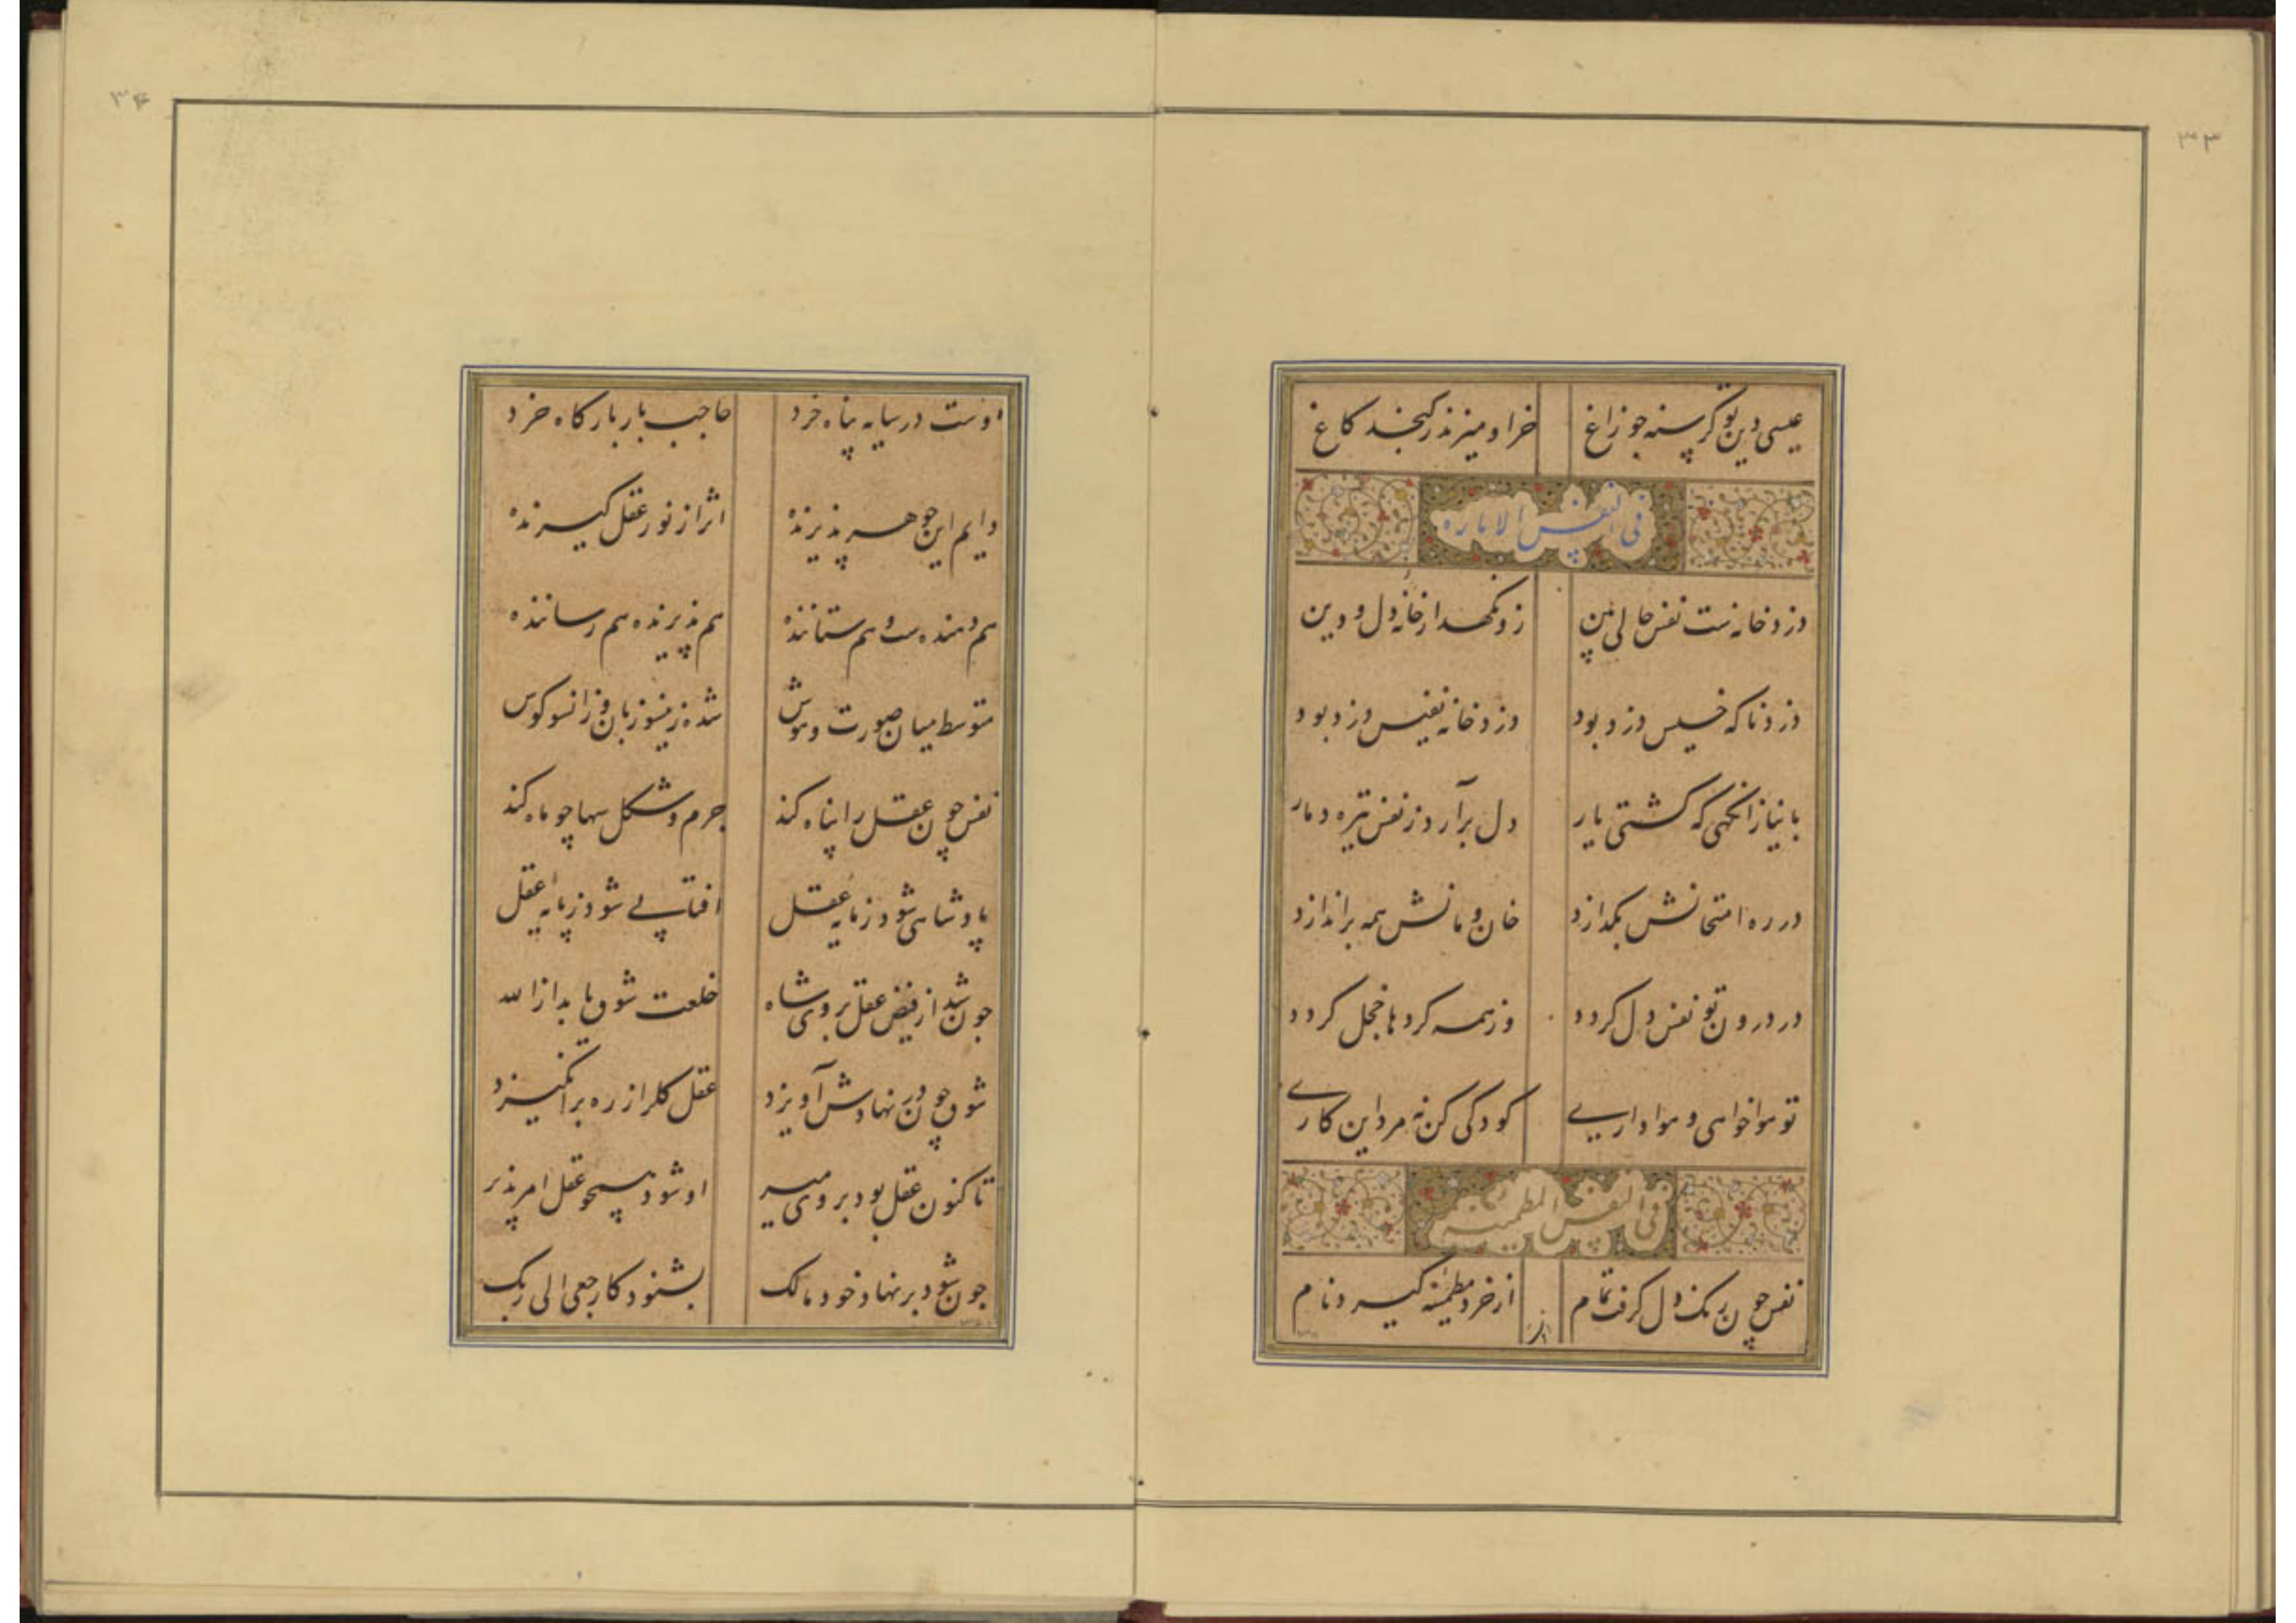 ۳۳
عیسی دین تو گرسنه چو زاغ خر او میزند ز کنجد کاغ
فی النفس الاماره
دزد خانه ست نفس حالی بین زو نگهدار خانهٔ دل و دین
دزد ناکه خسیس دزد بود دزد خانه نفیس دزد بود
با نیاز انگهی که گشتی یار دل برآرد ز نفس تیره دمار
در ره امتحانش بگدازد خان و مانش همه براندازد
در درون تو نفس دل گردد وز همه کردها خجل گردد
تو هواخواهی و هواداریی کودکی کن نه مرد این کاری
فی النفس المطمئنه
نفس چون رنک دل گرفت تمام از خرد مطمئنه گیرد نام
۳۴
اوست در سایه پناه خرد حاجب بار بارگاه خرد
دایم این جوهر پذیرنده اثر از نور عقل گیرنده
هم دهنده ست و هم ستاننده هم پذیرنده هم رساننده
متوسط میان صورت و هوش شده زینسو زبان وزانسو گوش
نفس چون عقل را پناه کند جرم و شکل سها چو ماه کند
پادشاهی شود ز مایه عقل افتابی شود ز پایه عقل
چون شد از فیض عقل بروی شاه خلعت شوق یابد از الله
شوق چون در نهادش آویزد عقل کل را ز ره برانگیزد
تا کنون عقل بود بر وی میر او شود همچو عقل امر پذیر
چون شود بر نهاد خود مالک بشنود کارجعی الی ربک